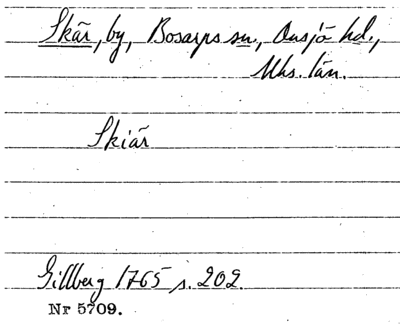 Skär, by, Bosarps sn, Onsjö hd.,
Mhs. län.
Skiär
Gillberg 1765 s. 202.
Nr 5709.